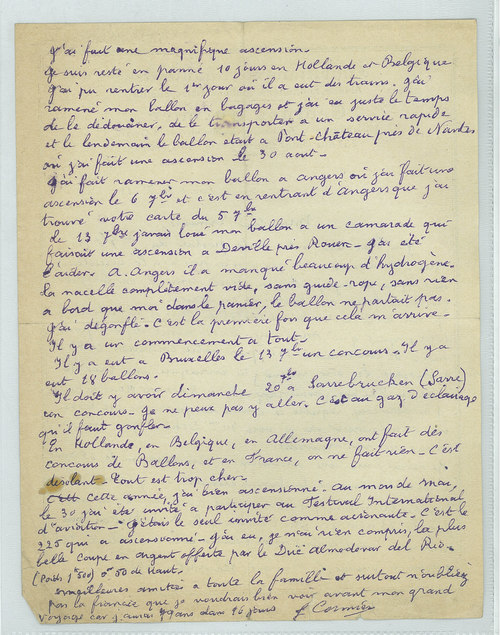 J'ai fait une magnifique ascension.
Je suis resté en panne 10 jours en Hollande et Belgique
J'ai pu rentrer le 1er jour où il a eut des trains. J'ai
ramené mon ballon en bagages et j'ai eu juste le temps
de le dédouaner, de le transporter a un service rapide
et le lendemain le ballon était a Pont-chateau près de Nantes
où j'ai fait une ascension le 30 aout.
J'ai fait ramener mon ballon a Angers où j'ai fait une
ascension le 6 7bre et c'est en rentrant d'Angers que j'ai
trouvé votre carte du 5 7bre
Le 13 7bre j'avais loué mon ballon a un camarade qui
faisait une ascension a Deville près Rouen - J'ai eté
l'aider. A Angers il a manqué beaucoup d'hydrogène.
la nacelle complètement vide, sans guide-rope, sans rien
a bord que moi dans le panier, le ballon ne partait pas.
J'ai dégonflé - C'est la première fois que cela m'arrive -
Il y a un commencement a tout -
Il y a eut a Bruxelles le 13 7bre un concours - Il y a
eut 18 ballons.
Il doit y avoir dimanche 20 7bre a Sarrebrucken (Sarre)
un concours - Je ne peux pas y aller. C'est au gaz d'éclairage
qu'il faut gonfler -
En Hollande, en Belgique, en Allemagne, ont fait des
concours de Ballons, et en France, on ne fait rien - C'est
désolant tout est trop cher -
cette année, j'ai bien ascensionné. au mois de mai,
le 30 j'ai été invité a participer au Festival International
d'aviation - J'étais le seul invité comme aéronaute. C'est le
225 qui a ascensionné - J'ai eu, je n'ai rien compris, la plus
belle Coupe en argent offerte par le Duc Almodovar del Rio.
(Poids 1k500) 0m50 de Haut.
meilleures amitiés a toute la famille et surtout n'oubliez
pas la fiancée que je voudrais bien voir avant mon grand
voyage car j'aurai 79 ans dans 16 jours
Cormier